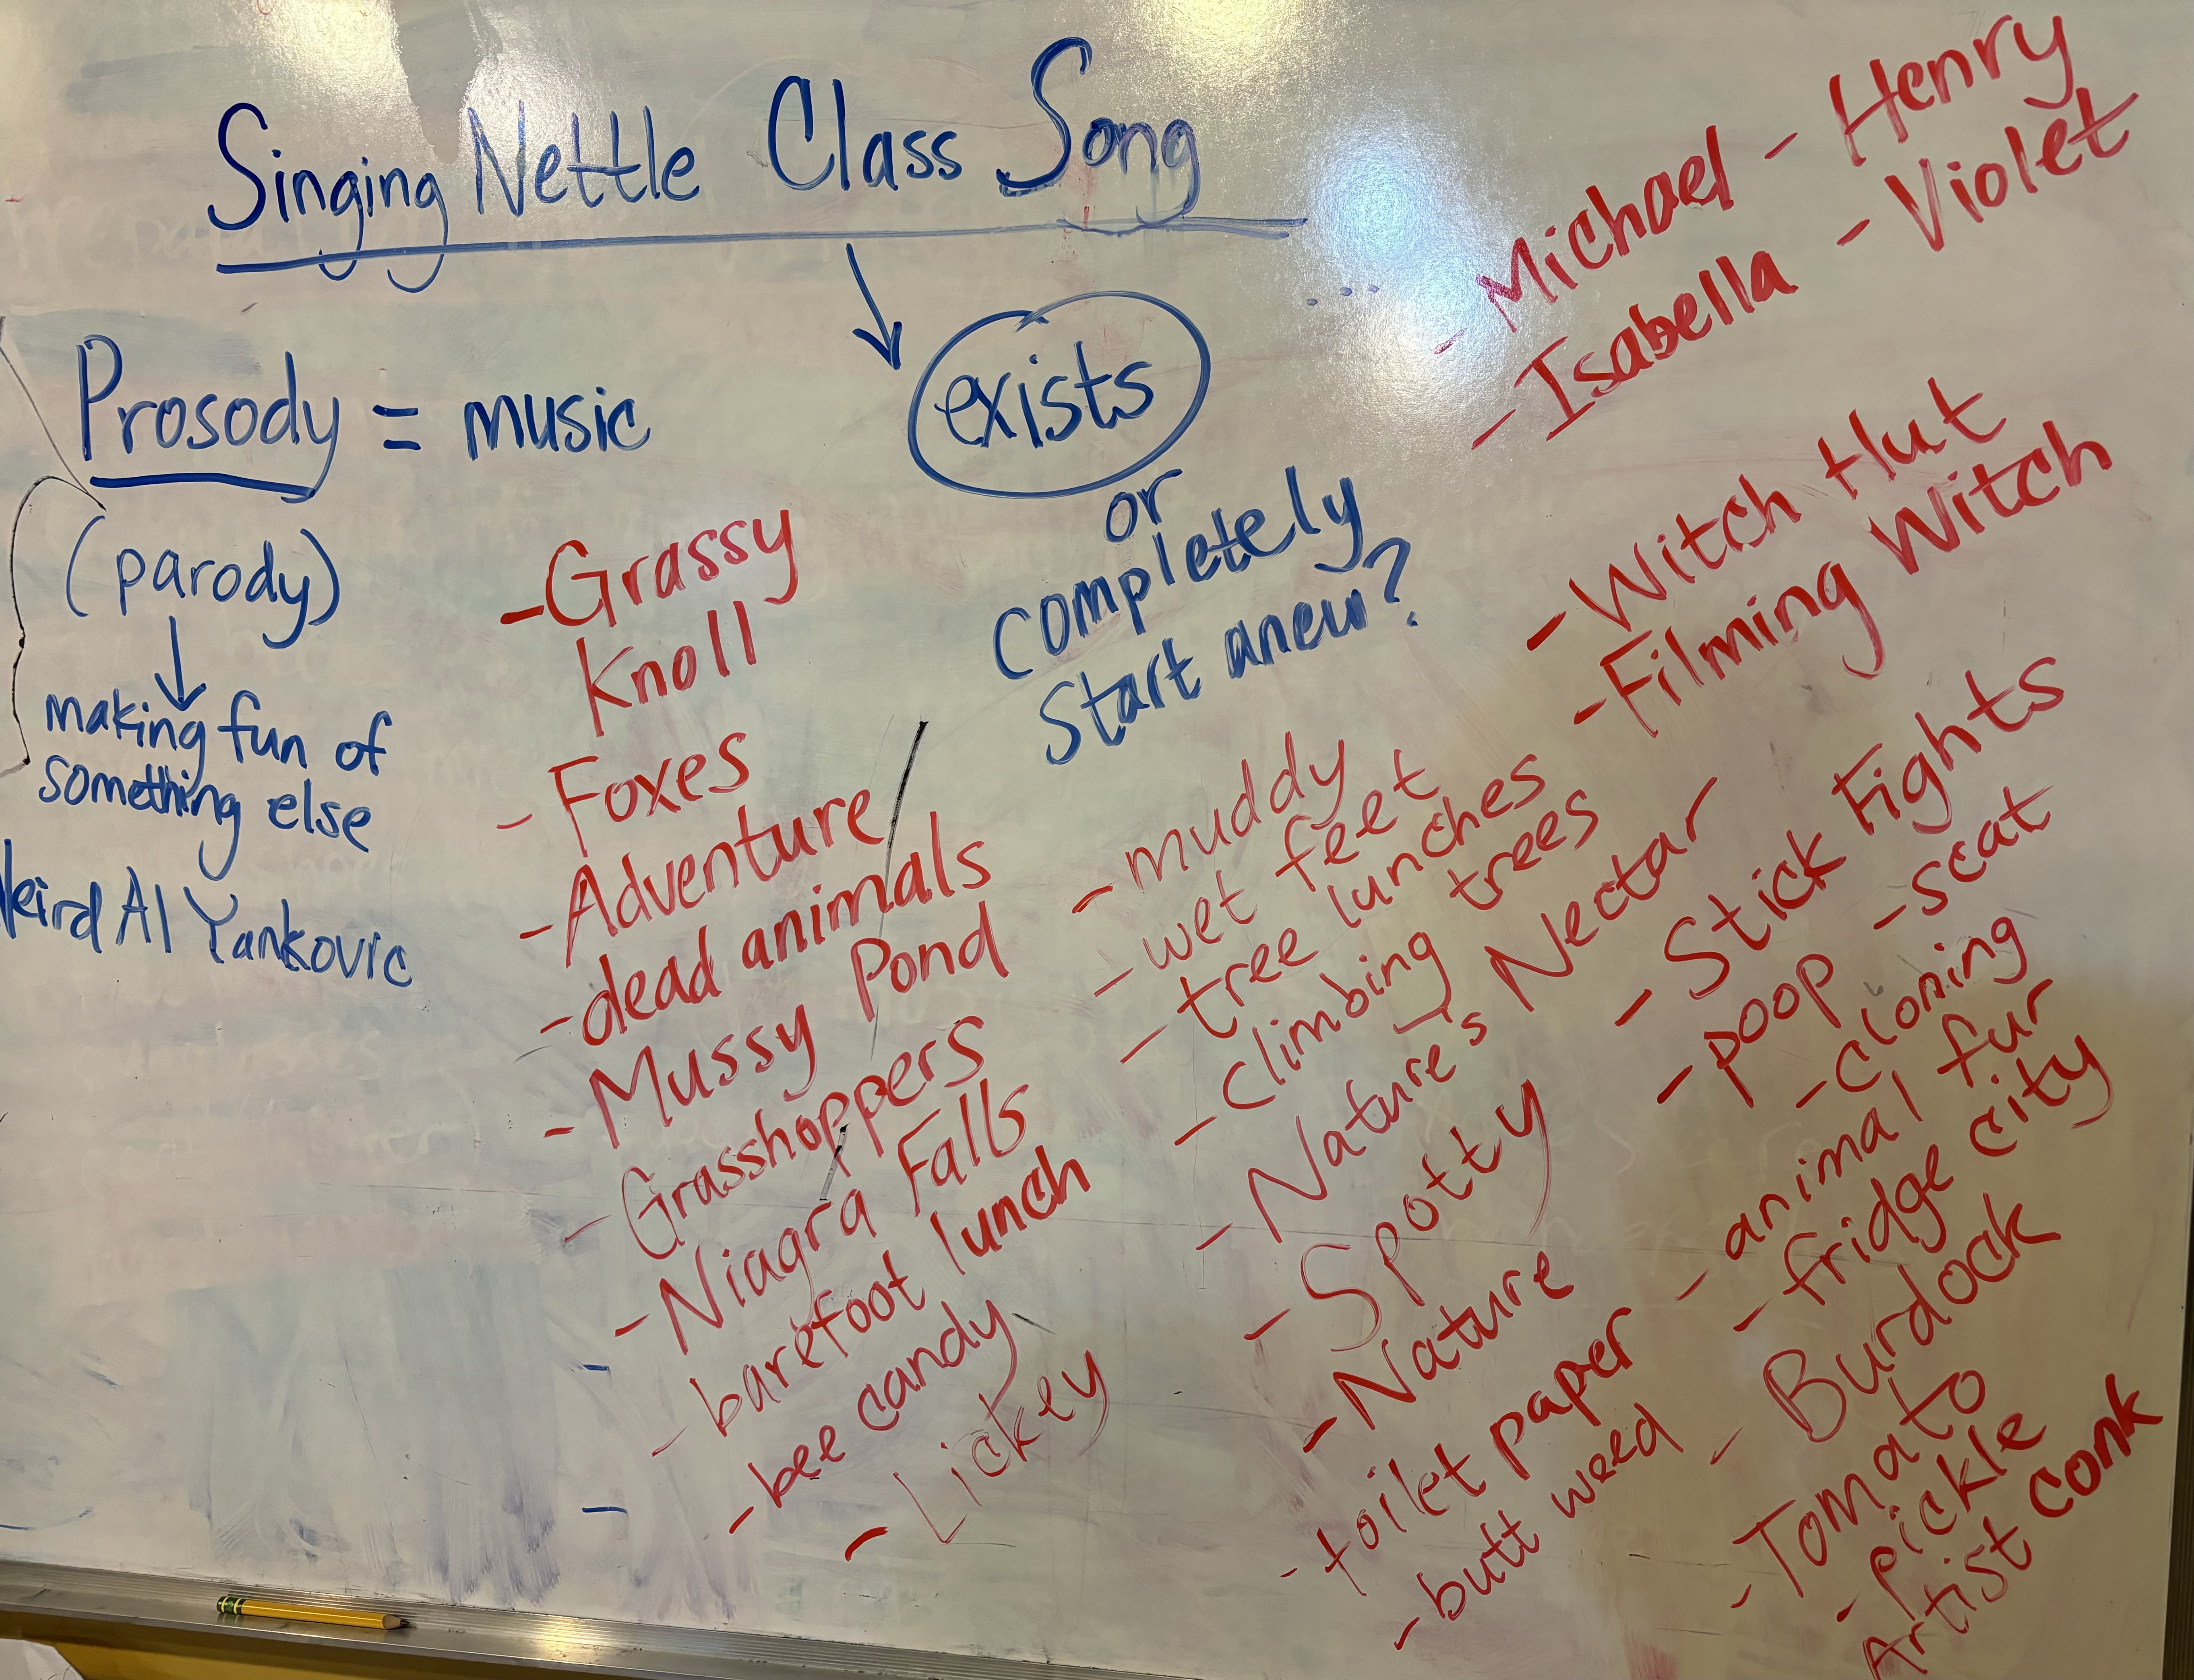 Singing Nettle Class Song
Prosody = music
(parody)
making fun of
something else
Weird Al Yankovic
exists
or
completely
Start anew?
...
- Michael - Henry
- Isabella - Violet
- Grassy
Knoll
- Foxes
- Adventure
- dead animals
- Mussy Pond
- Grasshoppers
- Niagra Falls
- barefoot lunch
- bee candy
- Lickey
- muddy
- wet feet
- tree lunches
- climbing trees
- Nature's Nectar
- Spotty
- Nature
- toilet paper
- butt weed
- Witch Hut
- Filming Witch
- Stick Fights
- poop - scat
- cloning
- animal fur
- fridge city
- Burdock
- Tomato
- pickle
Artist conk